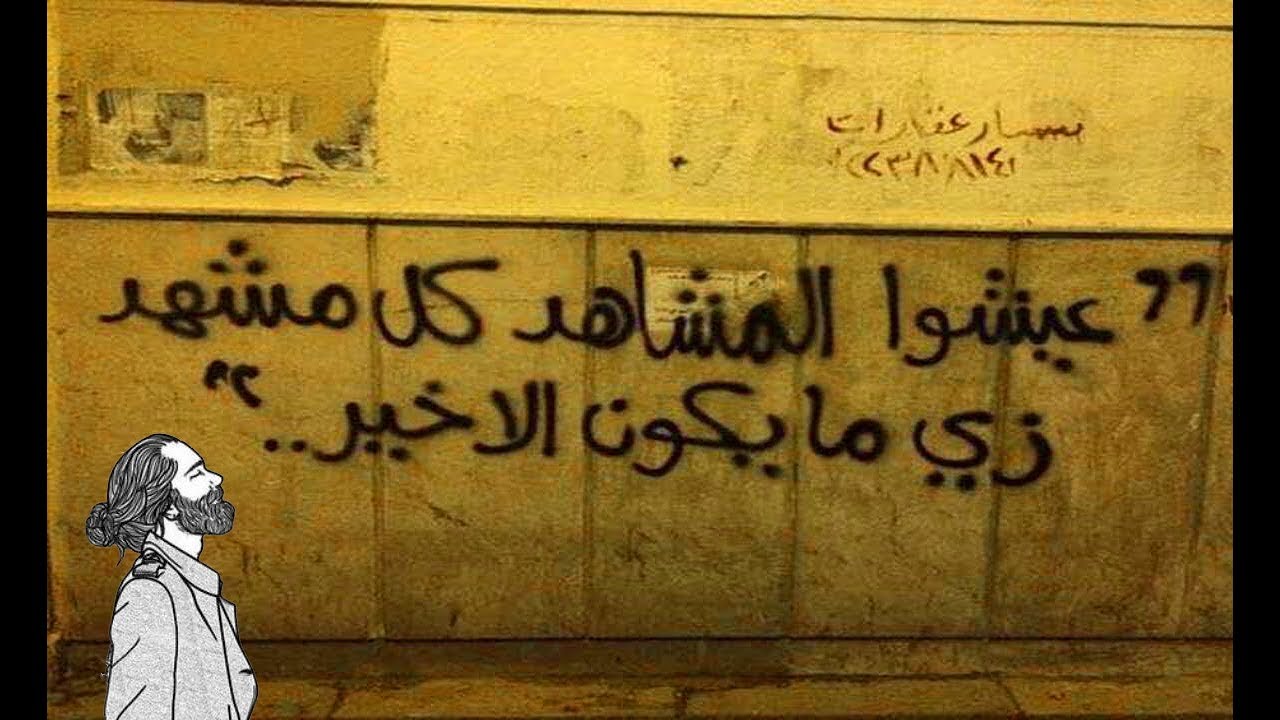 سمسار عقارات
" عيشوا المشاهد كل مشهد
زي ما يكون الاخير.. "